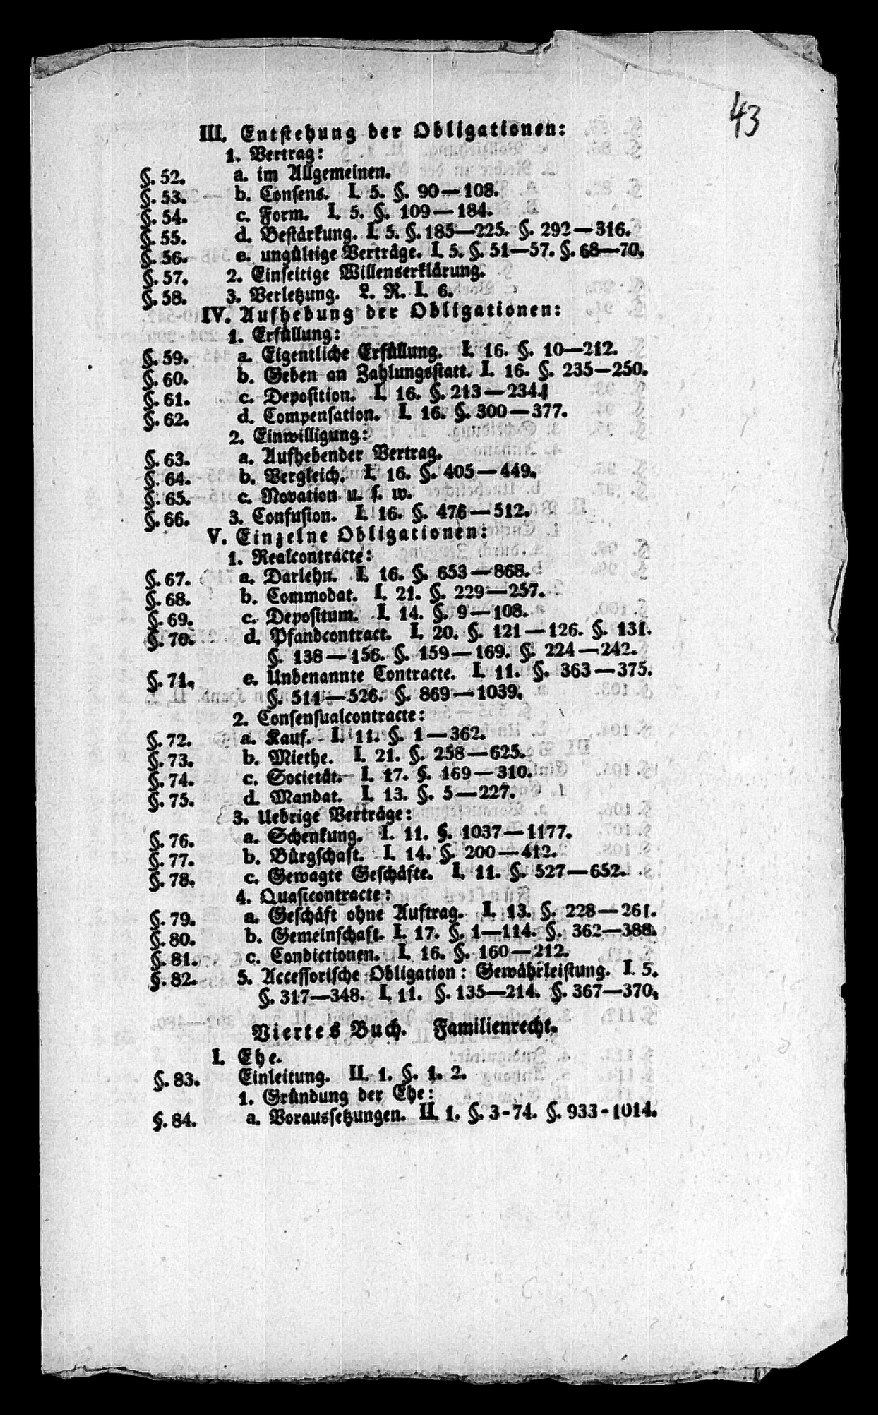 43
III. Entstehung der Obligationen:
1. Vertrag:
§. 52. a. im Allgemeinen.
§. 53. b. Consens. I. 5. §. 90—108.
§. 54. c. Form. I. 5. §. 109—184.
§. 55. d. Bestärkung. I. 5. §. 185—225. §. 292—316.
§. 56. e. ungültige Verträge. I. 5. §. 51—57. §. 68—70.
§. 57. 2. Einseitige Willenserklärung.
§. 58. 3. Verletzung. L. R. I. 6.
IV. Aufhebung der Obligationen:
1. Erfüllung:
§. 59. a. Eigentliche Erfüllung. I. 16. §. 10—212.
§. 60. b. Geben an Zahlungsstatt. I. 16. §. 235—250.
§. 61. c. Deposition. I. 16. §. 213—234.
§. 62. d. Compensation. I. 16. §. 300—377.
2. Einwilligung:
§. 63. a. Aufhebender Vertrag.
§. 64. b. Vergleich. I. 16. §. 405—449.
§. 65. c. Novation u. s. w.
§. 66. 3. Confusion. I. 16. §. 476—512.
V. Einzelne Obligationen:
1. Realcontracte:
§. 67. a. Darlehn. I. 16. §. 653—868.
§. 68. b. Commodat. I. 21. §. 229—257.
§. 69. c. Depositum. I. 14. §. 9—108.
§. 70. d. Pfandcontract. I. 20. §. 121—126. §. 131.
§. 138—156. §. 159—169. §. 224—242.
§. 71. e. Unbenannte Contracte. I. 11. §. 363—375.
§. 511—526. §. 869—1039.
2. Consensualcontracte:
§. 72. a. Kauf. I. 11. §. 1—362.
§. 73. b. Miethe. I. 21. §. 258—625.
§. 74. c. Societät. I. 17. §. 169—310.
§. 75. d. Mandat. I. 13. §. 5—227.
3. Uebrige Verträge:
§. 76. a. Schenkung. I. 11. §. 1037—1177.
§. 77. b. Bürgschaft. I. 14. §. 200—412.
§. 78. c. Gewagte Geschäfte. I. 11. §. 527—652.
4. Quasicontracte:
§. 79. a. Geschäft ohne Auftrag. I. 13. §. 228—261.
§. 80. b. Gemeinschaft. I. 17. §. 1—114. §. 362—388.
§. 81. c. Condictionen. I. 16. §. 160—212.
§. 82. 5. Accessorische Obligation: Gewährleistung. I. 5.
§. 317—348. I. 11. §. 135—214. §. 367—370.
Viertes Buch. Familienrecht.
I. Ehe.
§. 83. Einleitung. II. 1. §. 1. 2.
1. Gründung der Ehe:
§. 84. a. Voraussetzungen. II. 1. §. 3-74. §. 933-1014.